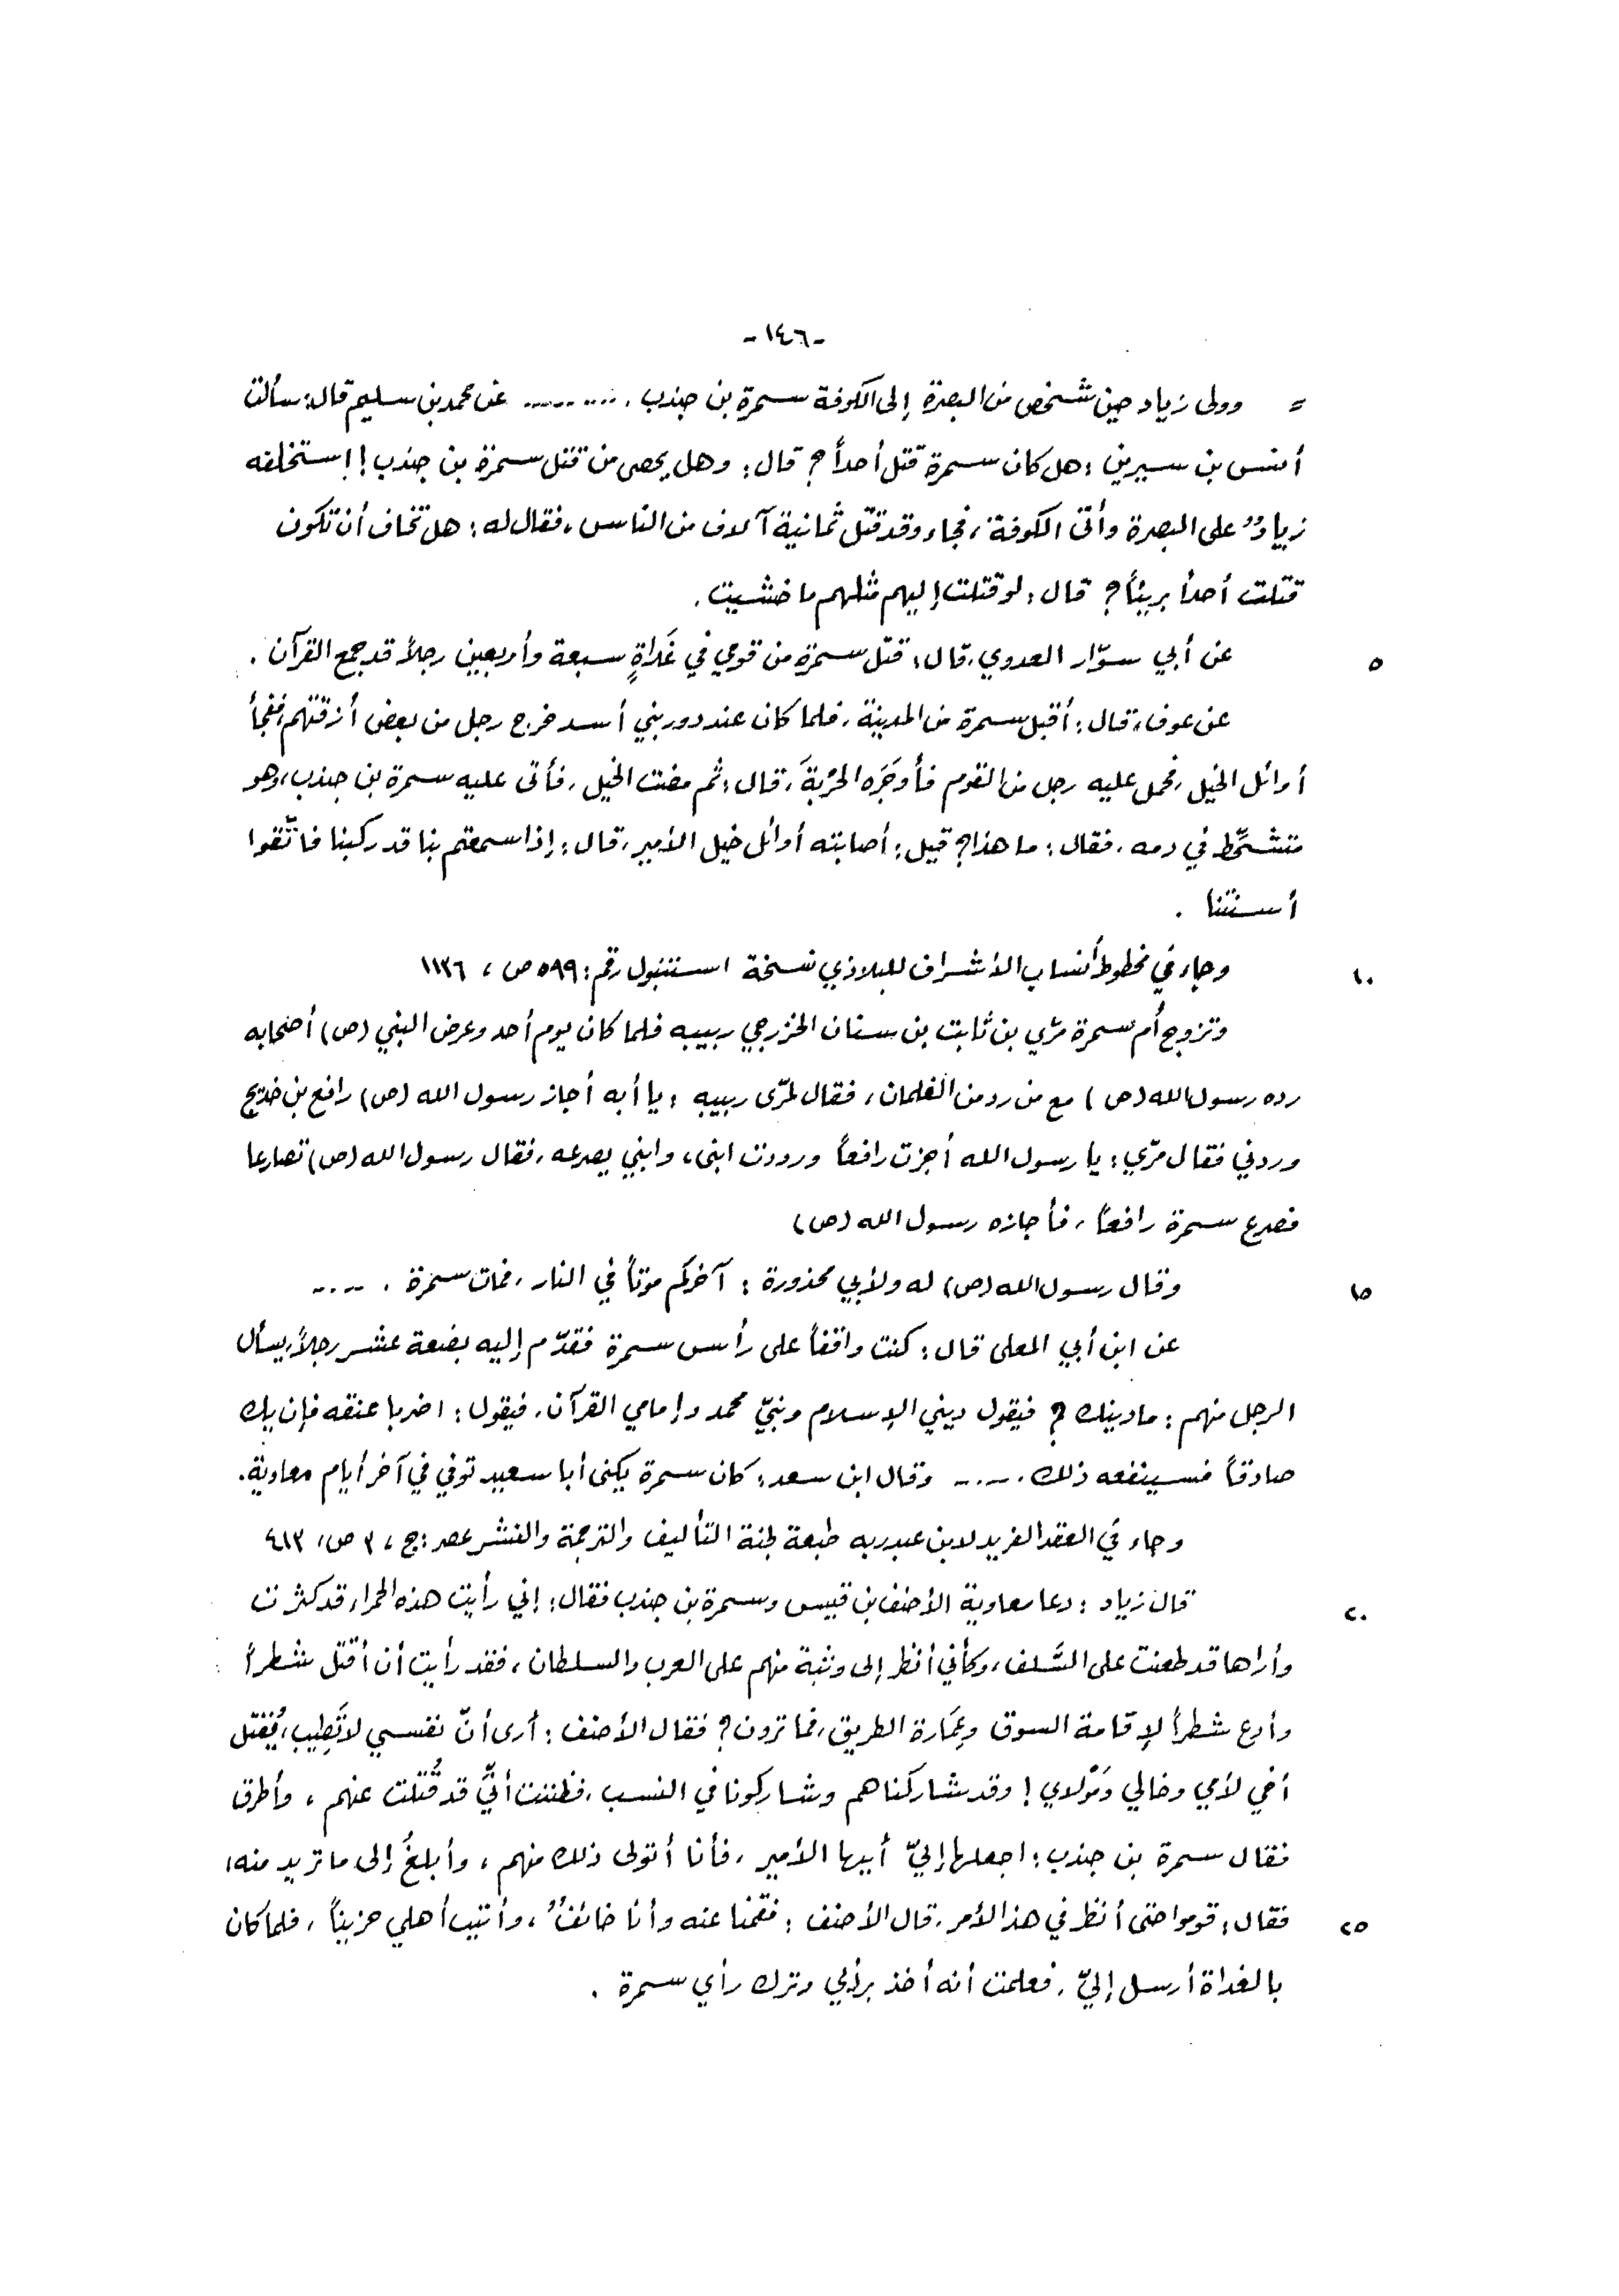 -١٤٦-
= وولى زياد حين شخص من البصرة إلى الكوفة سمرة بن جندب . ........ عن محمد بن سليم قال: سألت
أنس بن سيرين : هل كان سمرة قتل أحداً؟ قال: وهل يحصى من قتل سمرة بن جندب! استخلفه
زيادٌ على البصرة وأتى الكوفة، فجاء وقد قتل ثمانية آلاف من الناس، فقال له: هل تخاف أن تكون
قتلت أحداً بريئاً؟ قال: لو قتلت إليهم مثلهم ما خشيت .
٥ عن أبي سوّار العدوي، قال: قتل سمرة من قومي في غَداةٍ سبعة وأربعين رجلاً قد جمع القرآن .
عن عوف، قال: أقبل سمرة من المدينة، فلما كان عند دور بني أسد خرج رجل من بعض أزقتهم، ففجأ
أوائل الخيل، فحمل عليه رجل من القوم فأَوجَرَه الحَرْبةَ، قال: ثم مضت الخيل، فأتى عليه سمرة بن جندب، وهو
متشحِّط في دمه، فقال: ما هذا؟ قيل: أصابته أوائل خيل الأمير، قال: إذا سمعتم بنا قد ركبنا فاتَّقوا
أسنتنا .
١٠ وجاء في مخطوط أنساب الأشراف للبلاذري نسخة استنبول رقم: ٥٩٩ ص، ١١٣٦
وتزوج أم سمرة مرّي بن ثابت بن سنان الخزرجي ربيبه فلما كان يوم أحد وعرض النبي (ص) أصحابه
رده رسول الله (ص) مع من رد من الغلمان، فقال لمرّى ربيبه : يا أبه أجاز رسول الله (ص) رافع بن خديج
وردني فقال مرّي: يا رسول الله أجزت رافعاً ورددت ابنى، وابني يصرعه، فقال رسول الله (ص) تصارعا
فصرع سمرة رافعاً، فأجازه رسول الله (ص)
١٥ وقال رسول الله (ص) له ولأبي محذورة : آخركم موتاً في النار، فمات سمرة . ....
عن ابن أبي المعلى قال: كنت واقفاً على رأس سمرة فقدّم إليه بضعة عشر رجلاً، يسأل
الرجل منهم: ما دينك؟ فيقول ديني الإسلام ونبيّ محمد وإمامي القرآن، فيقول: اضربا عنقه فإن يك
صادقاً فسينفعه ذلك. .... وقال ابن سعد: كان سمرة يكنى أبا سعيد توفي في آخر أيام معاوية.
وجاء في العقد الفريد لابن عبد ربه طبعة لجنة التأليف والترجمة والنشر عصر: ج، ٣ ص، ٤١٣
٢٠ قال زياد : دعا معاوية الأحنف بن قيس وسمرة بن جندب فقال: إني رأيت هذه الحمراء قد كثرت
وأراها قد طعنت على السَّلف، وكأني أنظر إلى وثبة منهم على العرب والسلطان، فقد رأيت أن أقتل شطراً
وأدع شطراً لإقامة السوق وعِمَارة الطريق، فما ترون؟ فقال الأحنف: أرى أنّ نفسي لا تَطِيب، يُقتل
أخي لأمي وخالي ومَوْلاي! وقد شاركناهم وشاركونا في النسب، فظننت أنِّي قد قُتلت عنهم، وأطرق
فقال سمرة بن جندب: اجعلها إليّ أيها الأمير، فأنا أتولى ذلك منهم، وأبلغُ إلى ما تريد منه،
٢٥ فقال: قوموا حتى أنظر في هذ الأمر، قال الأحنف: فقمنا عنه وأنا خائفٌ، وأتيت أهلي حزيناً، فلما كان
بالغداة أرسل إليّ، فعلمت أنه أخذ برأيي وترك رأي سمرة .